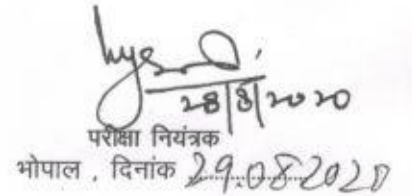 28/8/2020
परीक्षा नियंत्रक
भोपाल , दिनांक 29.08.2020